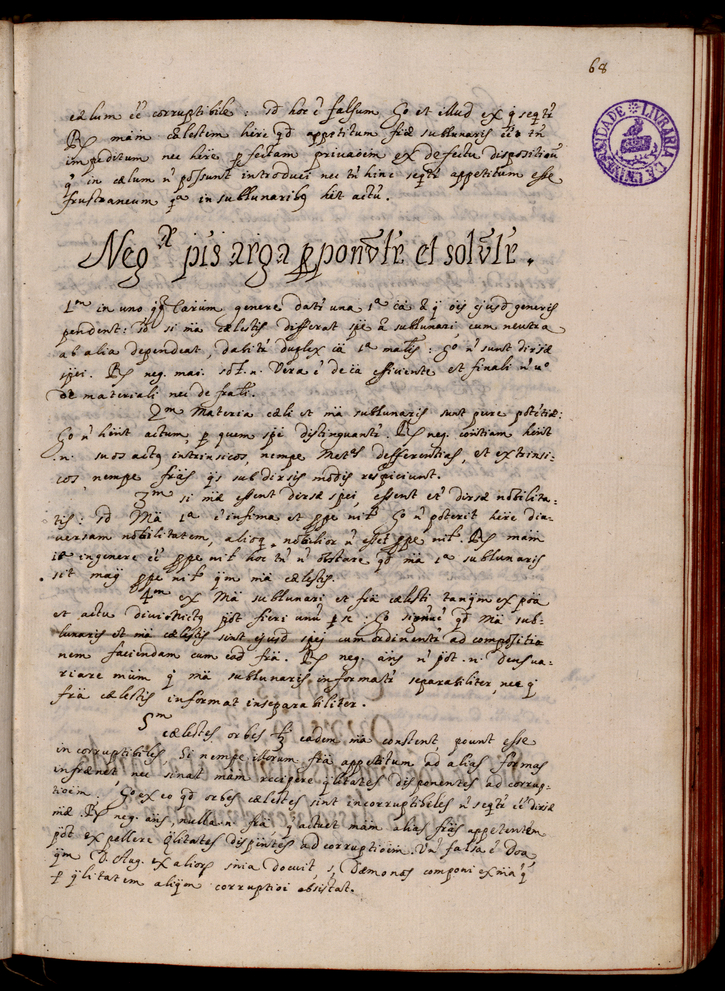 68
LIVRARIA DA UNIVERSIDADE
cælum ee corruptibile: sed hoc e falsum Go et illud ex quo seqtr
Rs mam cælestem here qd appetitum fræ sublunaris ee tn
impeditum nec here pfectam privaoem ex defectu dispositiou
q in cælum n possunt introduci nec tn hinc seqtr appetitum esse
frustraneum qa in sublunaribq het actu.
Negæ pis arga pponutr et solvutr.
1m in uno qq Carum genere datr una 1a ca a q oes ejusd generis
pendent: sed si ma cælestis differat spe a sublunari, cum neutra
ab alia dependeat, dabitr duplex ca 1a malis: Go n sunt dirsæ
spei. Rs neg. mai. sol. n. Vera e de ca efficiente et finali n vo
de materiali nec de frali.
2m Materia cæli et ma sublunaris sunt pure potetiæ:
Go n hent actum, p quem spe distinguantr. Rs neg. contiam hent
n. suos actq intrinsicos, nempe Metas differentias, et extrinsi-
cos, nempe fras qs sub dirsis modis respiciunt.
3m si mæ essent dirsæ spei, essent et dirsæ nobilita-
tis: sed Ma 1a e infima et ppe nil Go n poterit here di-
versam nobilitatem, alioq nobilior n esset ppe nil. Rs mam
in genere ee ppe nil hoc tn n obstare qd ma 1a sublunaris
sit magis ppe nil qm ma cælestis.
4m ex Ma sublunari et fra cælesti tanqm ex poa
et actu pot fieri unu p se: Go signu e qd Ma sub-
lunaris et ma cælestis sint ejusd spei cum ordinentr ad compositio
nem faciendam cum ead fra. Rs neg. ans n pot. n. Deus va-
riare mum q ma sublunaris informatr separabiliter, nec q
fra cælestis informat inseparabiliter.
5m cælestes orbes licet eadem ma constent, pount esse
incorruptibiles si nempe illorum fra appetitum ad alias formas
infrænet nec sinat mam recipere qlitates disponentes ad corrup-
tioem. Go ex eo qd orbes cælestes sint incorruptibeles n seqtr ee dirsæ
mæ. Rs neg. ans, nulla n. fra q actuet mam alias fras appetentem
pot expellere qlitates dispntes ad corruptioem. Un falsa e Doa
qm D. Aug. ex alior snia docuit, s, Dæmonas componi ex ma q
p qlitatem aliqm corruptioi obsistat.